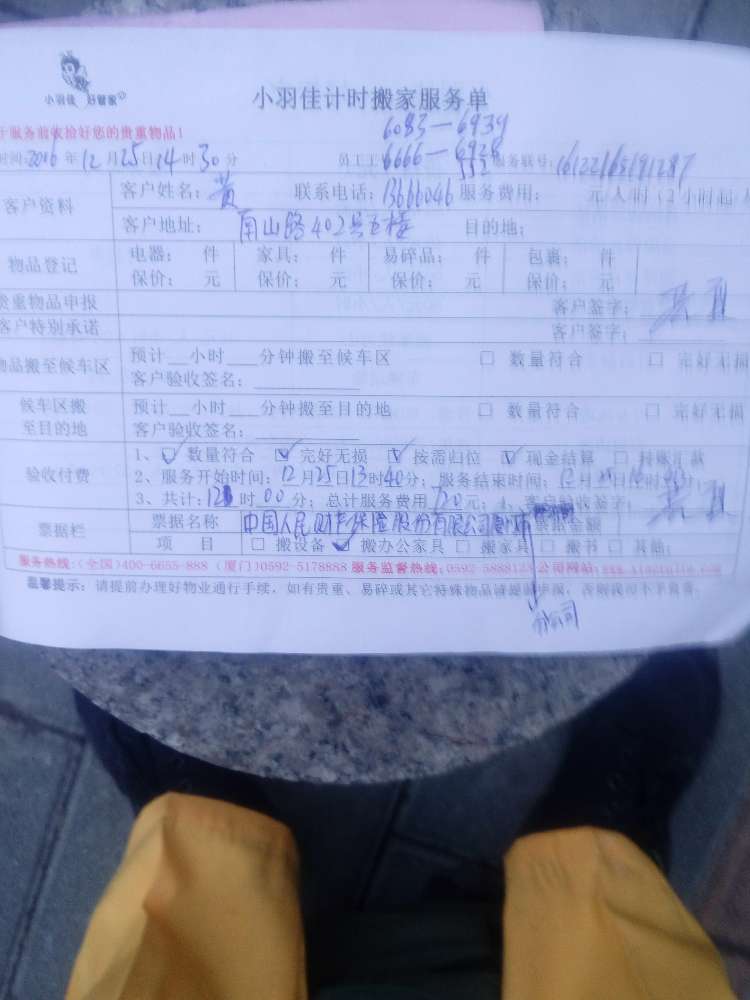 小羽佳 好管家
小羽佳计时搬家服务单
6083-6939
于服务前收拾好您的贵重物品!
时间:2016年12月25日14时30分 员工工 6666-6928 服务联号:
客户资料 客户姓名:黄 联系电话:13666046 服务费用: 元/人/时(2小时起
客户地址: 南山路402号五楼 目的地:
物品登记 电器: 件 家具: 件 易碎品: 件 包裹: 件
保价: 元 保价: 元 保价: 元 保价: 元
贵重物品申报 客户签字:
客户特别承诺 客户签字:
物品搬至候车区 预计__小时___分钟搬至候车区 □ 数量符合 □ 完好无损
客户验收签名:
候车区搬至目的地 预计__小时___分钟搬至目的地 □ 数量符合 □ 完好无损
客户验收签名:
验收付费 1、☑ 数量符合 ☑ 完好无损 ☑ 按需归位 ☑ 现金结算 □ 转账汇款
2、服务开始时间:12月25日13时40分; 服务结束时间:12月25日
3、共计: 时00分; 总计服务费用120元; 4、客户验收签字:
票据栏 票据名称 中国人民财产保险股份有限公司厦门市 票据金额
项 目 □ 搬设备 ☑ 搬办公家具 □ 搬家具 □ 搬书 □ 其他:
服务热线:(全国)400-6655-888 (厦门)0592-5178888 服务监督热线:0592-5888123 公司网站:
温馨提示: 请提前办理好物业通行手续,如有贵重、易碎或其它特殊物品请提前申报,否则我司不予负责。
分公司